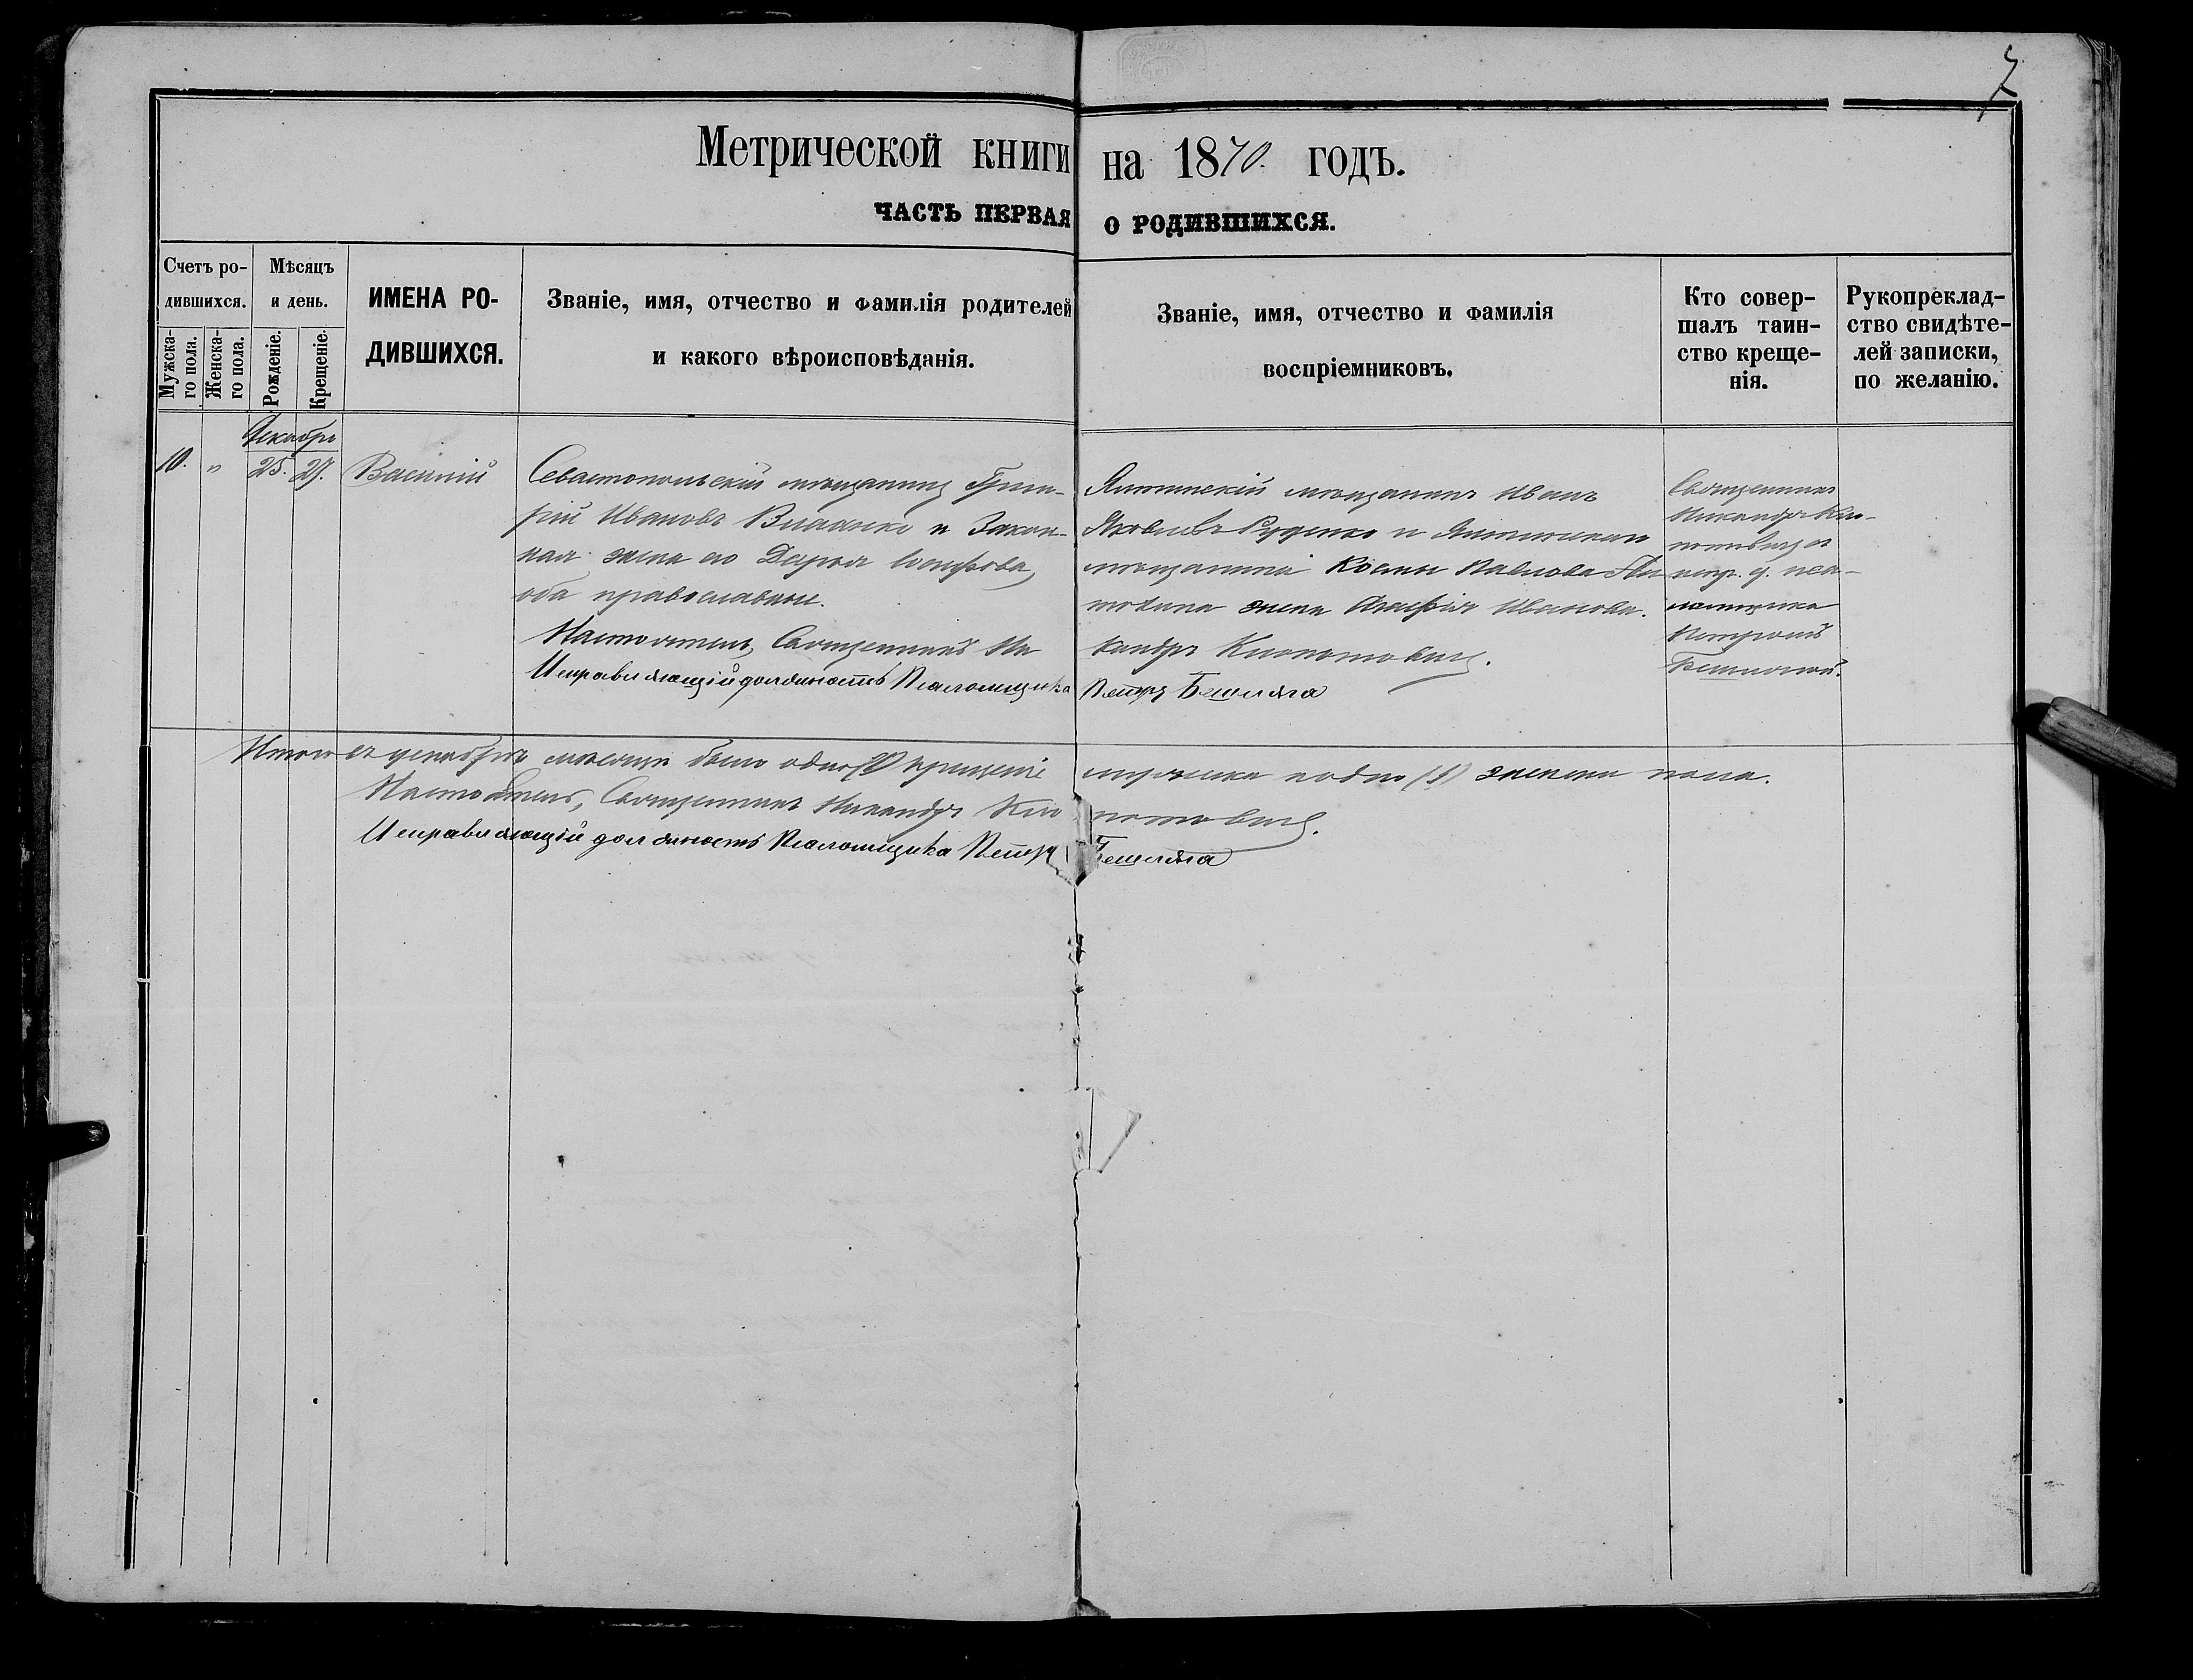 7
Метрической книги на 1870. годъ.
ЧАСТЬ ПЕРВАЯ О РОДИВШИХСЯ.
Счетъ ро-
дившихся.
Мужска-
го пола.
Женска-
го пола.
Мѣсяцъ
и день.
Рожденіе.
Крещеніе.
ИМЕНА РО-
ДИВШИХСЯ.
Званіе, имя, отчество и фамилія родителей
и какого вѣроисповѣданія.
Званіе, имя, отчество и фамилія
воспріемниковъ.
Кто совер-
шалъ таин-
ство креще-
нія.
Рукоприклад-
ство свидѣте-
лей записки,
по желанію.
Декабрь
10. " 25. 27. Василій
Севастопольскій мѣщанинъ Григо-
рій Ивановъ и Закон-
ная жена его Дарья Іосифова,
оба православные.
Настоятель, Священникъ Ни
Исправляющій должность Псаломщика
Ялтинскій мѣщанинъ Иванъ
Яковлевъ Руденко и Ялтинскаго
мѣщанина Космы Павлова
жена Иванова.
кандръ
Петръ Бешляга
Священникъ
Никандръ
съ
испр. д. пса-
ломщика
Петромъ
Итого въ декабрѣ мѣсяцѣ было одно (1) крещеніе мужска и одно (1) женска пола.
Настоятель, Священникъ Никандръ
Исправляющій должность Псаломщика Петръ Бешляга